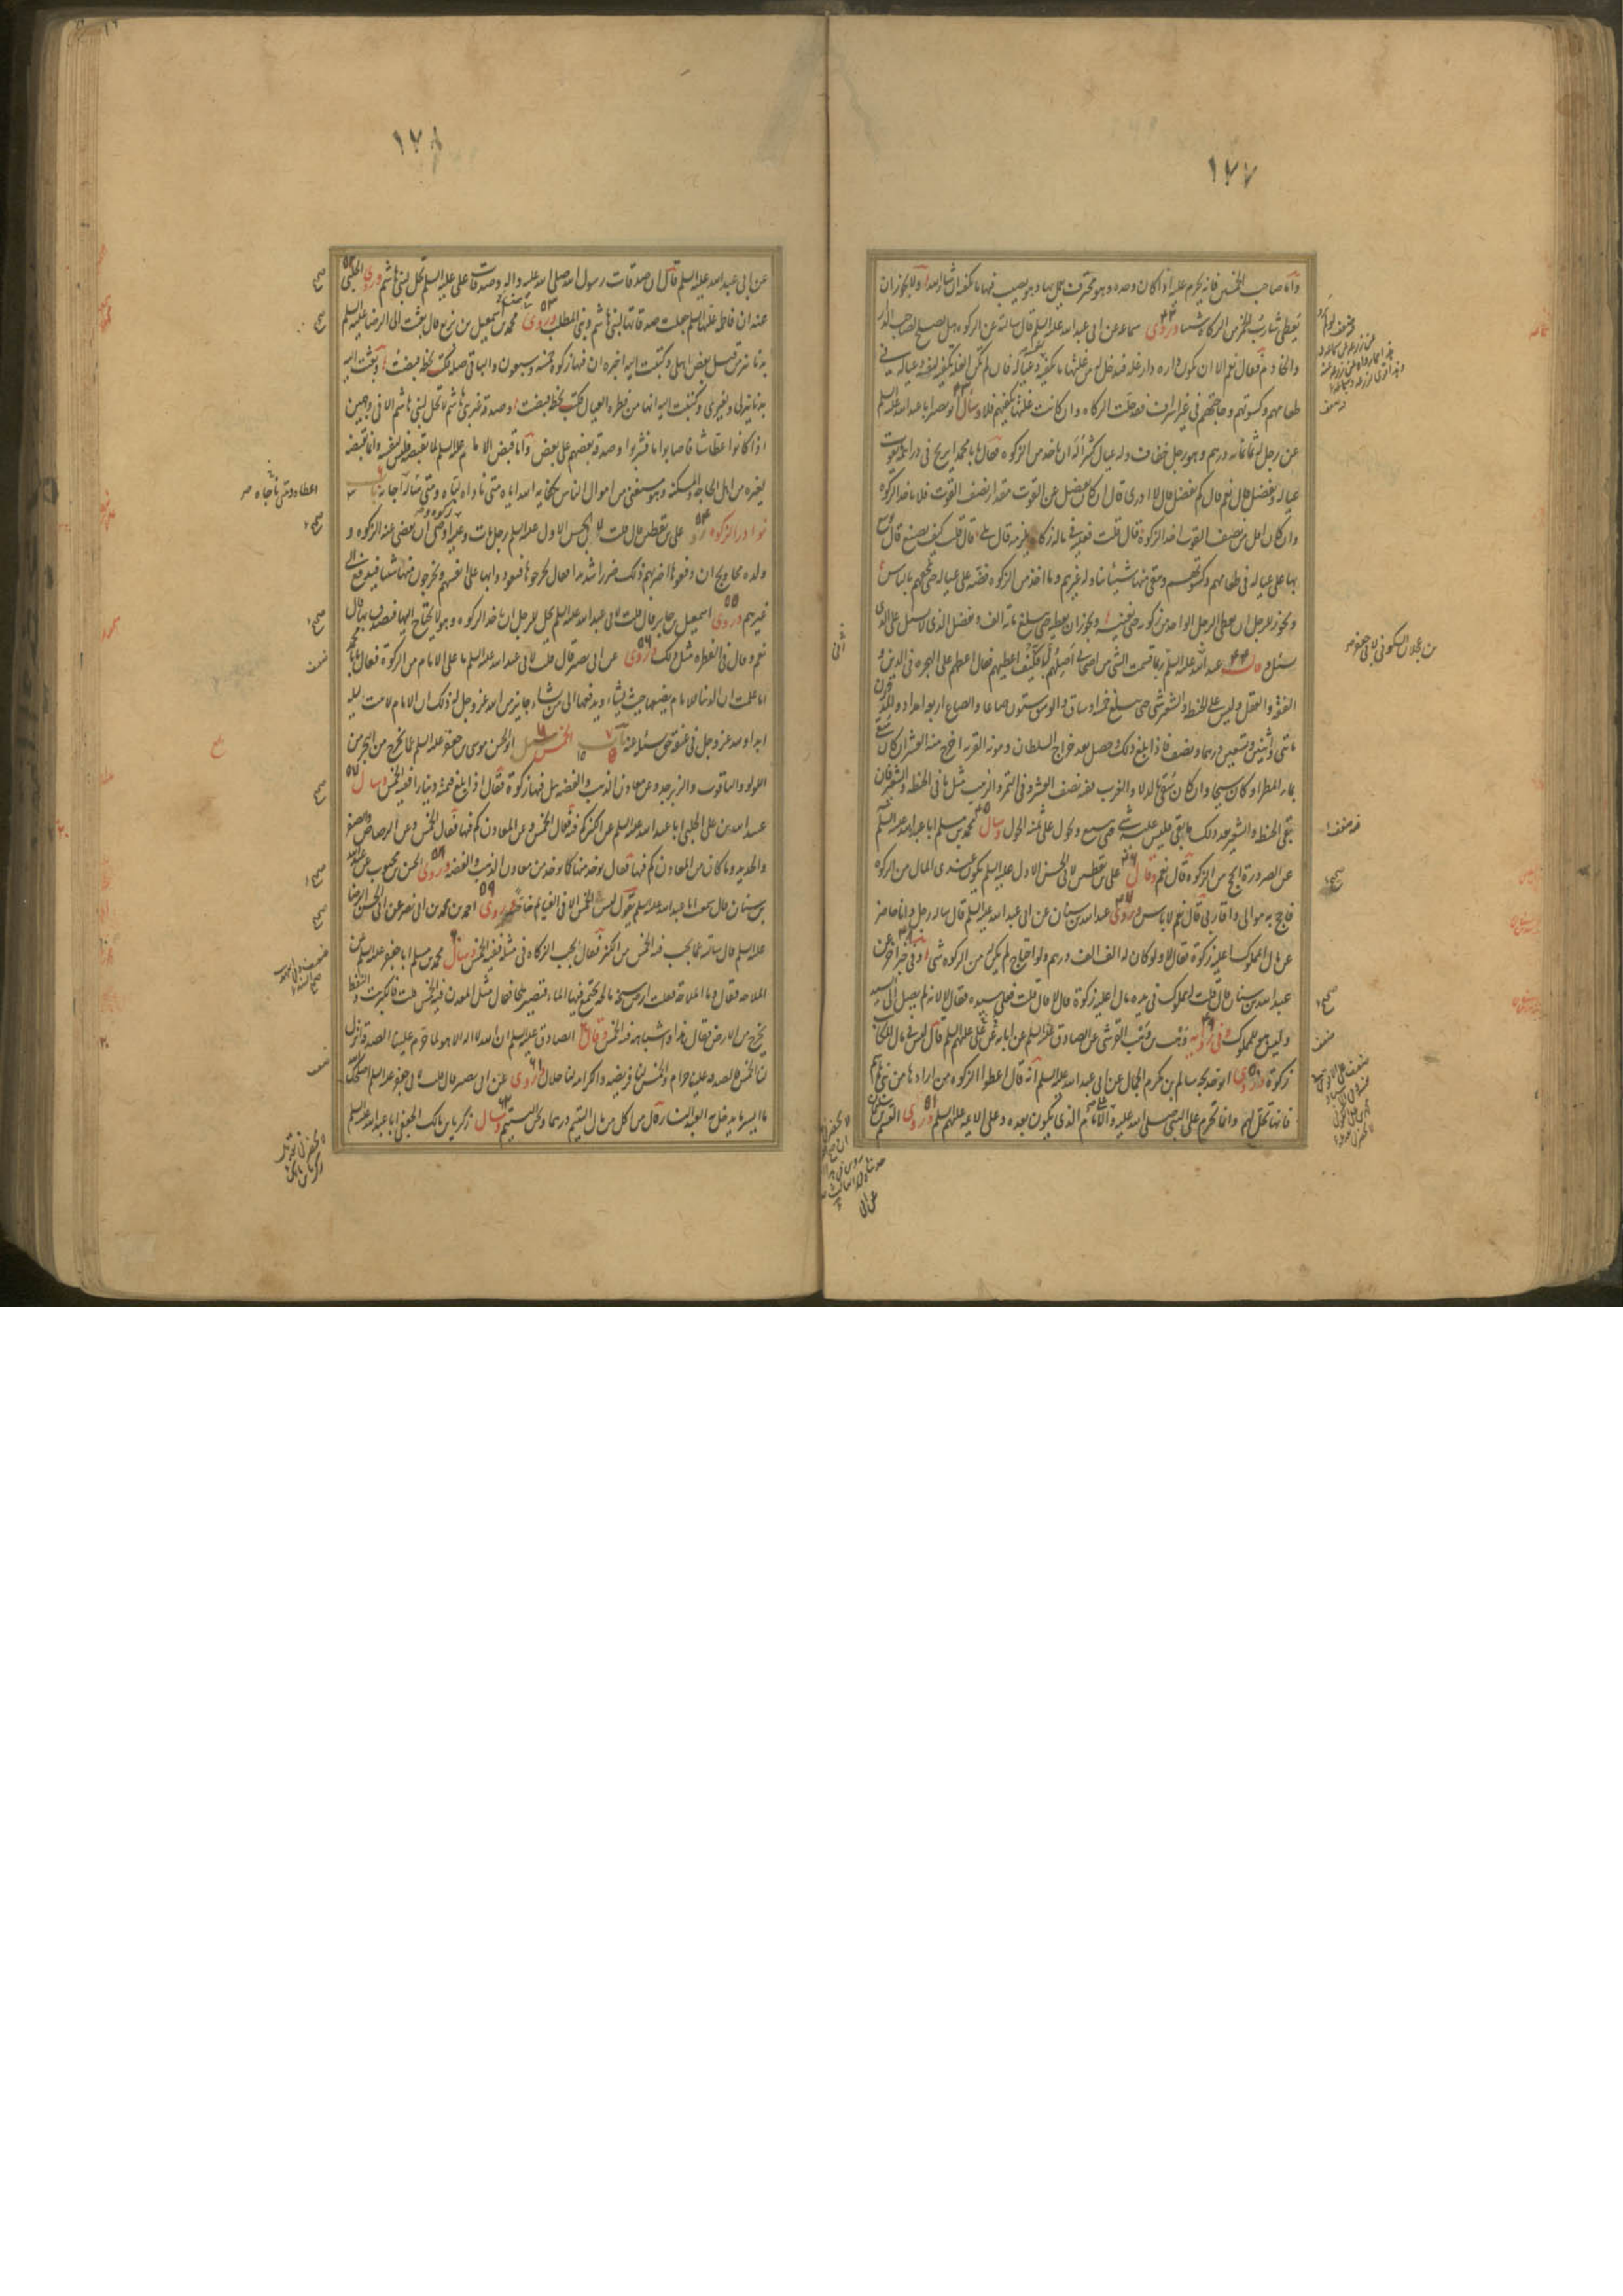 ١٧٧
واما صاحب الخمسين فانه يحرم عليه اذا كان وحده وهو محترف يعمل بها وهو يصيب فيها ما يكفيه ان شاء الله ولا يجوز ان
يعطى شارب الخمر من الزكاة شيئا وروى سماعة عن ابى عبد الله عليه السلم قال سالته عن الزكوة هل تصلح لصاحب الدار
والخادم فقال نعم الا ان يكون داره دار غلة فيدخل له من غلتها ما يكفيه وعياله فان لم تكن الغلة تكفيه لنفسه وعياله فى
طعامهم وكسوتهم وحاجتهم فى غير اسراف فقد حلت له الزكاه وان كانت غلتها تكفيهم فلا وسال ابو بصير ابا عبد الله عليه السلم
عن رجل له ثمانمائه درهم وهو رجل خفاف وله عيال كثير اله ان ياخذ من الزكوة فقال يا با محمد ايربح فى دراهمه ما يقوت به
عياله ويفضل قال نعم قال كم يفضل قال لا ادرى قال ان كان يفضل عن القوت مقدار نصف القوت فلا ياخذ الزكوة
وان كان اقل من نصف القوت اخذ الزكوة قال قلت فعليه فى ماله زكاة يلزمه قال بلى قال قلت كيف يصنع قال يوسع
بها على عياله فى طعامهم وكسوتهم ويبقى منها شيئا يناوله غيرهم وما اخذ من الزكوه فضه على عياله حتى يلحقهم بالناس
ويجوز للرجل ان يعطى الرجل الواحد من زكوته حتى يغنيه ويجوز ان يعطيه حتى يبلغ مائة الف ويفضل الذى لا يسال على الذى
يسئل و قال عبد الله عليه السلم ربما قسمت الشئ بين اصحابى اصلهم به فكيف اعطيهم فقال اعطهم على الهجره فى الدين و
الفقه والعقل وليس على الحنطة والشعير شئ حتى يبلغ خمسة اوساق والوسق ستون صاعا والصاع اربعة امداد والمد وزن
مائتى واثنين وتسعين درهما ونصف فاذا بلغ ذلك وحصل بعد خراج السلطان ومونة القريه اخرج منه العشر ان كان سقى
بماء المطر او كان سيحا وان كان سقى بالدلاء والغرب ففيه نصف العشر وفى التمر والزبيب مثل ما فى الحنطة والشعير فان
بقى الحنطة والشعير بعد ذلك ما بقى فليس عليه شئ حتى يبيع ويحول على ثمنه الحول وسال محمد بن مسلم ابا عبد الله عليه السلم
عن الصرورة ايحج من الزكوة قال نعم وقال على بن يقطين لابى الحسن الاول عليه السلم يكون عندى المال من الزكوة
فاحج به موالى واقاربى قال نعم لا باس وروى عبد الله بن سنان عن ابى عبد الله عليه السلم قال ساله رجل وانا حاضر
عن مال المملوك اعليه زكوة فقال لا ولو كان له الف الف درهم ولو احتاج لم يكن له من الزكوه شئ وفى خبر اخر عن
عبد الله بن سنان قال قلت له مملوك فى يده مال اعليه زكوة قال لا قال قلت فعلى سيده فقال لا لانه لم يصل الى السيد
وليس هو للمملوك وفى رواية وهب بن وهب القرشى عن الصادق عن ابائه عن على عليهم السلم قال ليس فى مال المكاتب
زكوة وروى ابو خديجه سالم بن مكرم الجمال عن ابى عبد الله عليه السلم انه قال اعطوا الزكوه من ارادها من بنى هاشم
فانها تحل لهم وانما تحرم على النبى صلى الله عليه وآله والامام الذى يكون بعده وعلى الائمة عليهم السلم وروى القسم بن سليمان
بن عجلان السكونى لابى جعفر
ضعيف
١٧٨
عن ابى عبد الله عليه السلم قال ان صدقات رسول الله صلى الله عليه واله وصدقات على عليه السلم تحل لبنى هاشم وروى الحلبى
عنه ان فاطمة عليها السلم جعلت صدقاتها لبنى هاشم وبنى المطلب وروى محمد بن اسمعيل بن بزيع قال بعثت الى الرضا عليه السلم
بدنانير من قبل بعض اهلى وكتبت اليه اخبره ان فيها زكوة خمسة وسبعون والباقى صلة فكتب بخطه قبضت وبعثت اليه
بدنانير لى ولغيرى وكتبت اليه انها من فطره العيال فكتب بخطه قبضت وصدقة غير بنى هاشم لا تحل لبنى هاشم الا فى وجهين
اذا كانوا عطاشا فاصابوا ماء فشربوا وصدقة بعضهم على بعض واما قبض الامام عليه السلم لما يقبضه فليس لنفسه وانما قبضه
لغيره من اهل الحاجة والمسكنة وهو مستغن عن اموال الناس بكفاية الله اياه متى ناداه لباه ومتى ساله اجابه باب
نوادر الزكوة روى على بن يقطين قال قلت لابى الحسن الاول عليه السلم رجل مات وعليه زكوة واوصى ان يقضى عنه الزكوه و
ولده محاويج ان دفعوها اضر بهم ذلك ضررا شديدا فقال يخرجوها فيعودوا بها على انفسهم ويخرجون منها شيئا فيدفع الى
غيرهم وروى اسمعيل بن جابر قال قلت لابى عبد الله عليه السلم يحل للرجل ان ياخذ الزكوه وهو لا يحتاج اليها فيتصدق بها قال
نعم وقال فى الفطره مثل ذلك وروى عن ابى بصير قال قلت لابى عبد الله عليه السلم ما على الامام من الزكوة فقال يا با محمد
اما علمت ان الدنيا للامام يضعها حيث يشاء ويدفعها الى من يشاء جايز من الله عز وجل له ذلك ان الامام لا يبيت ليلة
ابدا ولله عز وجل فى عنقه حق يسئله عنه باب الخمس سئل ابو الحسن موسى بن جعفر عليه السلم عما يخرج من البحر من
اللولو والياقوت والزبرجد وعن معادن الذهب والفضه هل فيها زكوة فقال اذا بلغ قيمته دينارا ففيه الخمس وسال
عبيد الله بن على الحلبى ابا عبد الله عليه السلم عن الكنز كم فيه فقال الخمس وعن المعادن كم فيها فقال الخمس وعن الرصاص والصفر
والحديد وما كان من المعادن كم فيها فقال يؤخذ منها كما يؤخذ من معادن الذهب والفضه وروى الحسن بن محبوب عن عبد الله
بن سنان قال سمعت ابا عبد الله عليه السلم يقول ليس الخمس الا فى الغنايم خاصة وروى احمد بن محمد بن ابى نصر عن ابى الحسن الرضا
عليه السلم قال سالته عما يجب فيه الخمس من الكنز فقال ما يجب الزكاه فى مثله ففيه الخمس وسال محمد بن مسلم ابا جعفر عليه السلم عن
الملاحة فقال وما الملاحة فقلت ارض سبخة مالحة يجتمع فيها الماء فتصير ملحا فقال مثل المعدن فيه الخمس قلت فالكبريت والنفط
يخرج من الارض فقال هذا واشباهه فيه الخمس وقال الصادق عليه السلم ان الله لا اله الا هو لما حرم علينا الصدقة انزل
لنا الخمس فالصدقة علينا حرام والخمس لنا فريضه والكرامه لنا حلال وروى عن ابى بصير قال قلت لابى جعفر عليه السلم اصلحك الله
ما ايسر ما يدخل به العبد النار قال من اكل من مال اليتيم درهما ونحن اليتيم وسال زكريا بن مالك الجعفى ابا عبد الله عليه السلم
اعطاه ومتى ناجاه
صحيح
ضعيف